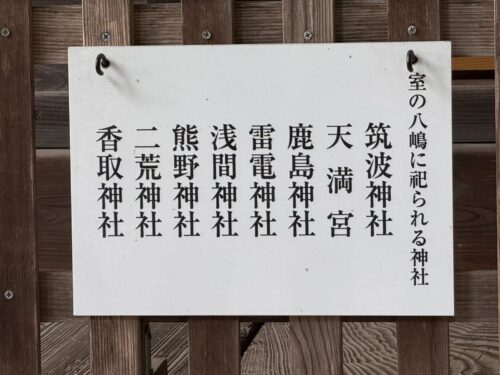 室の八嶋に祀られる神社
筑波神社
天満宮
鹿島神社
雷電神社
浅間神社
熊野神社
二荒神社
香取神社